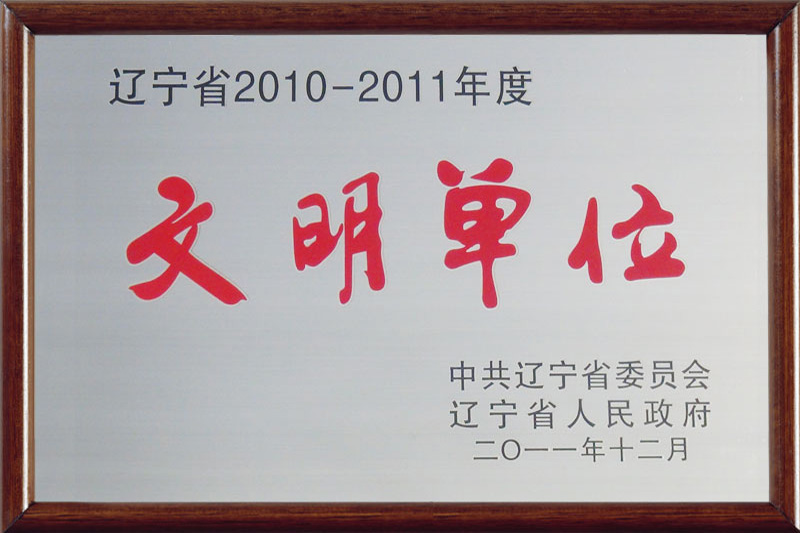 辽宁省2010-2011年度
文明单位
中共辽宁省委员会
辽宁省人民政府
二〇一一年十二月